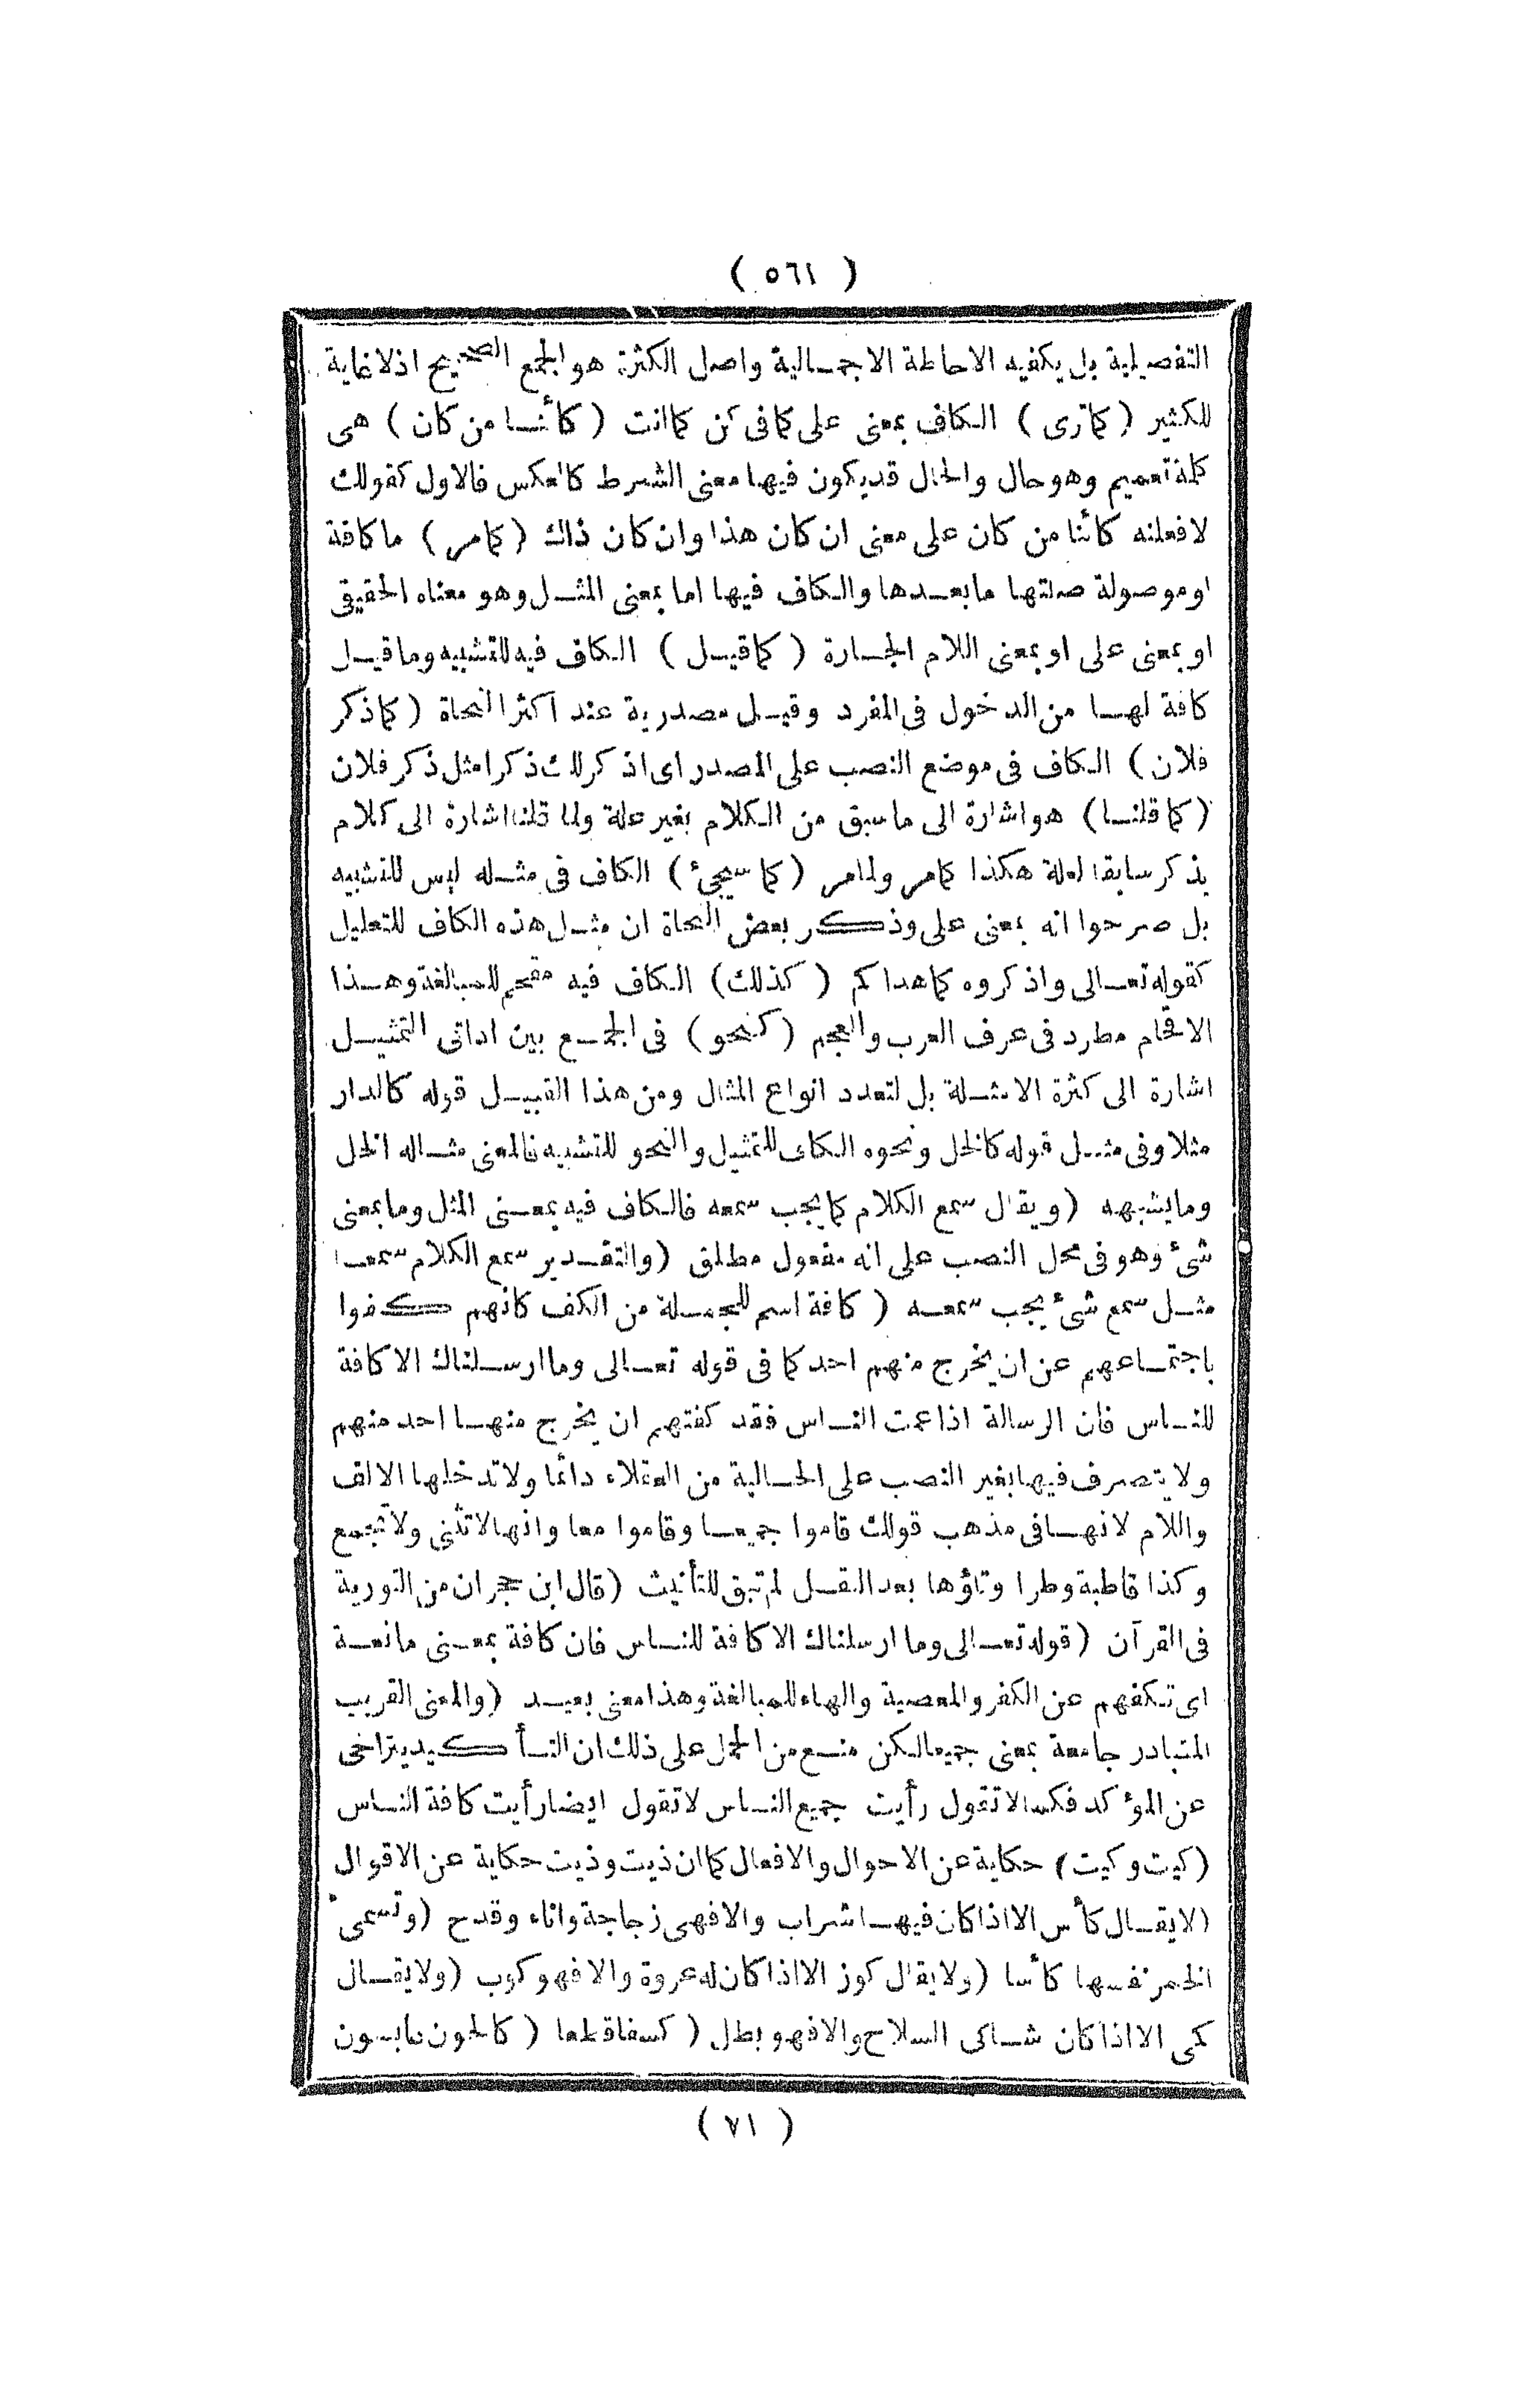 ( ٥٦١ )
التفصيلية بل يكفيه الاحاطة الاجمالية واصل الكثرة هو الجمع الصحيح اذلا غاية
للكثير ( كما ترى ) الكاف بمعنى على كما فى كن كما انت ( كأنسا من كان ) هى
كلمة تعميم وهو حال والحال قديكون فيها معنى الشرط كالعكس فالاول كقولك
لافعلنه كأنا من كان على معنى ان كان هذا وان كان ذاك ( كمامر ) ما كافة
او موصولة صلتها مابعدها والكاف فيها اما بمعنى المثل وهو معناه الحقيقى
او بمعنى على او بمعنى اللام الجارة ( كما قيل ) الكاف فيه للتشبيه وما قيل
كافة لها من الدخول فى المفرد وقيل مصدرية عند اكثر النحاة ( كما ذكر
فلان ) الكاف فى موضع النصب على المصدر اى اذكر لك ذكرا مثل ذكر فلان
( كما قلنا ) هو اشارة الى ما سبق من الكلام بغير علة ولما قلنا اشارة الى كلام
يذكر سابقا لعلة هكذا كمامر ولمامر ( كما سيجئ ) الكاف فى مثله ليس للتشبيه
بل صرحوا انه بمعنى على وذكر بعض النحاة ان مثل هذه الكاف للتعليل
كقوله تعالى واذكروه كما هداكم ( كذلك ) الكاف فيه مقحم للمبالغة وهذا
الاقحام مطرد فى عرف العرب والعجم ( كنحو ) فى الجمع بين اداتى التمثيل
اشارة الى كثرة الامثلة بل لتعدد انواع المثال ومن هذا القبيل قوله كالدار
مثلا وفى مثل قوله كالخل ونحوه الكاف للتمثيل والنحو للتشبيه فالمعنى مثاله الخل
ومايشبهه ( ويقال سمع الكلام كما يجب سمعه فالكاف فيه بمعنى المثل وما بمعنى
شئ وهو فى محل النصب على انه مفعول مطلق ( والتقدير سمع الكلام سمعا
مثل سمع شئ يجب سمعه ( كافة اسم للجملة من الكف كانهم كفوا
باجتماعهم عن ان يخرج منهم احد كما فى قوله تعالى وما ارسلناك الا كافة
للناس فان الرسالة اذا عمت الناس فقد كفتهم ان يخرج منها احد منهم
ولا يتصرف فيها بغير النصب على الحالية من العقلاء دائما ولا تدخلها الالف
واللام لانها فى مذهب قولك قاموا جميعا وقاموا معا وانها لاتثنى ولا تجمع
وكذا قاطبة وطرا وتاؤها بعد النقل لم تبق للتأنيث ( قال ابن حجر ان من التورية
فى القرآن ( قوله تعالى وما ارسلناك الا كافة للناس فان كافة بمعنى مانعة
اى تكفهم عن الكفر والمعصية والهاء للمبالغة وهذا معنى بعيد ( والمعنى القريب
المتبادر جامعة بمعنى جميعا لكن منع من الحمل على ذلك ان التأكيد يتراخى
عن المؤكد فكما لا تقول رأيت جميع الناس لا تقول ايضا رأيت كافة الناس
( كيت وكيت ) حكاية عن الاحوال والافعال كما ان ذيت وذيت حكاية عن الاقوال
( لايقال كأس الا اذا كان فيها شراب والا فهى زجاجة واناء وقدح ( وتسمى
الخمر نفسها كأسا ( ولا يقال كوز الا اذا كان له عروة والا فهو كوب ( ولا يقال
كمى الا اذا كان شاكى السلاح والا فهو بطل ( كسفا قطعا ( كالحون عابسون
( ٧١ )